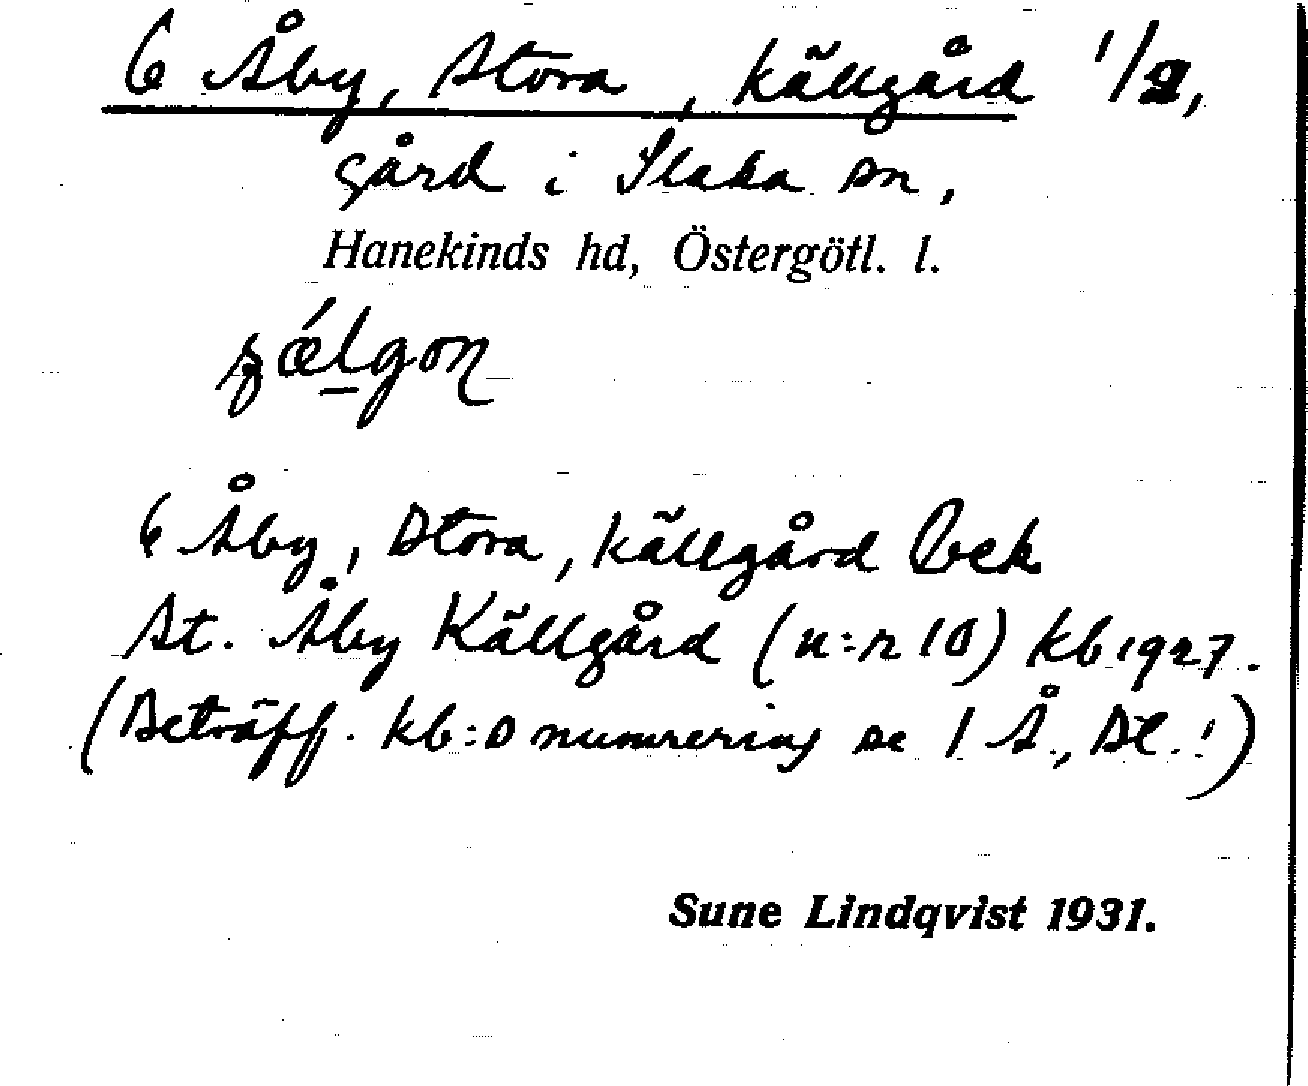 6 Åby, Stora, Källgård 1/2,
gård i Slaka sn,
Hanekinds hd, Östergötl. l.
6 Åby, Stora, Källgård Bek
St. Åby Källgård (n:r 10) kb 1927.
(Beträff. kb:s numrering se 1 Å., St.!)
Sune Lindqvist 1931.